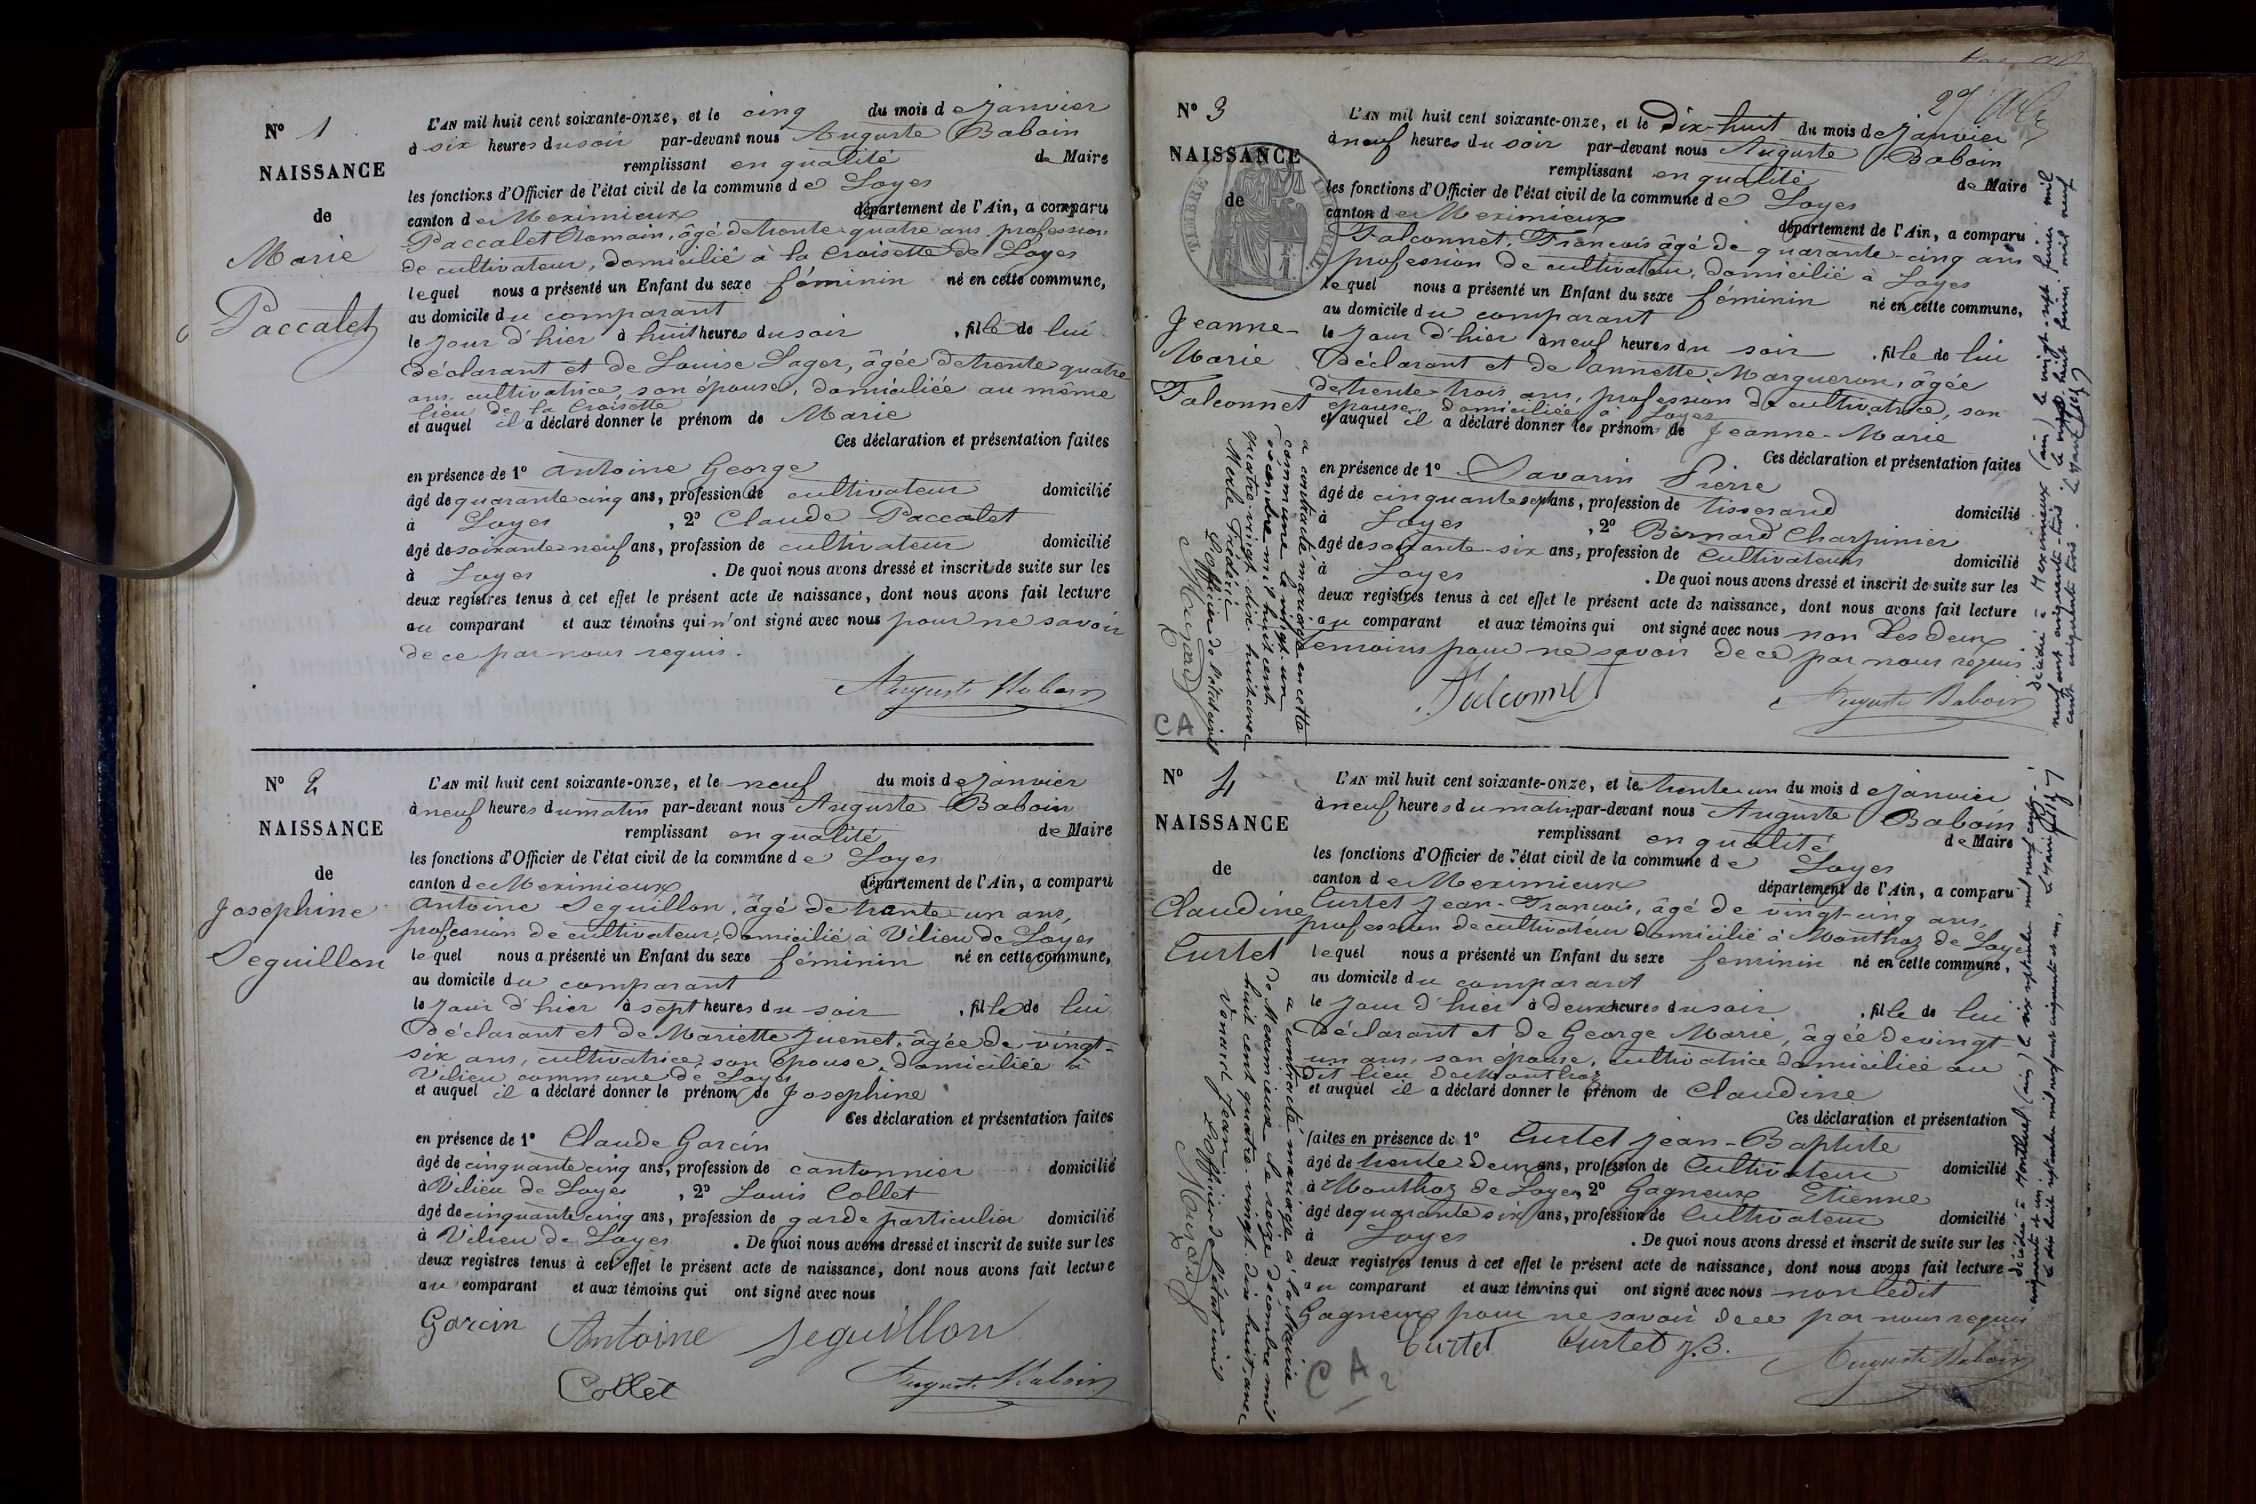 N° 1
NAISSANCE
de
Marie
Paccalet
L'AN mil huit cent soixante-onze, et le cinq du mois de Janvier
à six heures du soir par-devant nous Auguste Baboin
remplissant en qualité de Maire
les fonctions d'Officier de l'état civil de la commune de Loyes
canton de Meximieux département de l'Ain, a comparu
Paccalet Romain, âgé de trente quatre ans profession
de cultivateur, domicilié à la Croisette de Loyes
lequel nous a présenté un Enfant du sexe féminin né en cette commune,
au domicile du comparant
le jour d'hier à huit heures du soir , fille de lui
déclarant et de Louise Lager, âgée de trente quatre
ans cultivatrice, son épouse, domiciliée au même
lieu de la Croisette
et auquel il a déclaré donner le prénom de Marie
Ces déclaration et présentation faites
en présence de 1° Antoine George
âgé de quarante cinq ans, profession de cultivateur domicilié
à Loyes , 2° Claude Paccalet
âgé de soixante neuf ans, profession de cultivateur domicilié
à Loyes . De quoi nous avons dressé et inscrit de suite sur les
deux registres tenus à cet effet le présent acte de naissance, dont nous avons fait lecture
au comparant et aux témoins qui n'ont signé avec nous pour ne savoir
de ce par nous requis.
Auguste Baboin
N° 2
NAISSANCE
de
Josephine
Seguillon
L'AN mil huit cent soixante-onze, et le neuf du mois de Janvier
à neuf heures du matin par-devant nous Auguste Baboin
remplissant en qualité de Maire
les fonctions d'Officier de l'état civil de la commune de Loyes
canton de Meximieux département de l'Ain, a comparu
Antoine Seguillon, âgé de trente un ans,
profession de cultivateur, domicilié à Vilieu de Loyes
lequel nous a présenté un Enfant du sexe féminin né en cette commune,
au domicile du comparant
le jour d'hier à sept heures du soir , fille de lui
déclarant et de Mariette Juenet, âgée de vingt-
six ans, cultivatrice, son épouse, domiciliée à
Vilieu commune de Loyes
et auquel il a déclaré donner le prénom de Josephine
Ces déclaration et présentation faites
en présence de 1° Claude Garcin
âgé de cinquante cinq ans, profession de cantonnier domicilié
à Vilieu de Loyes , 2° Louis Collet
âgé de cinquante cinq ans, profession de garde particulier domicilié
à Vilieu de Loyes . De quoi nous avons dressé et inscrit de suite sur les
deux registres tenus à cet effet le présent acte de naissance, dont nous avons fait lecture
au comparant et aux témoins qui ont signé avec nous
Garcin Antoine Seguillon
Collet Auguste Baboin
27
N° 3
NAISSANCE
de
Jeanne-
Marie
Falconnet
TIMBRE
L'AN mil huit cent soixante-onze, et le Dix-huit du mois de Janvier
à neuf heures du soir par-devant nous Auguste Baboin
remplissant en qualité de Maire
les fonctions d'Officier de l'état civil de la commune de Loyes
canton de Meximieux département de l'Ain, a comparu
Falconnet, François âgé de quarante-cinq ans
profession de cultivateur, domicilié à Loyes
lequel nous a présenté un Enfant du sexe féminin né en cette commune,
au domicile du comparant
le jour d'hier à neuf heures du soir , fille de lui
Déclarant et de Annette Margueron, âgée
de trente-trois, ans, profession de cultivatrice, son
épouse, domiciliée à Loyes
et auquel il a déclaré donner les prénoms de Jeanne-Marie
Ces déclaration et présentation faites
en présence de 1° Savarin Pierre
âgé de cinquante sept ans, profession de Tisserand domicilié
à Loyes , 2° Bernard Charpinier
âgé de soixante-six ans, profession de Cultivateur domicilié
à Loyes . De quoi nous avons dressé et inscrit de suite sur les
deux registres tenus à cet effet le présent acte de naissance, dont nous avons fait lecture
au comparant et aux témoins qui ont signé avec nous non Les deux
temoins pour ne savoir de ce par nous requis
Falconnet Auguste Baboin
a contracté mariage en cette
commune le vingt-un
décembre mil huit cent
quatre-vingt-dix-huit avec
Merle Frédéric
L'officier de l'état civil
CA
décédée à Meximieux (ain) le vingt-sept février mil
neuf cent cinquante-trois. Le vingt huit février mil neuf
cent cinquante trois.
N° 4
NAISSANCE
de
Claudine
Curtet
L'AN mil huit cent soixante-onze, et le trente un du mois de Janvier
à neuf heures du matin, par-devant nous Auguste Baboin
remplissant en qualité de Maire
les fonctions d'Officier de l'état civil de la commune de Loyes
canton de Meximieux département de l'Ain, a comparu
Curtet Jean-François, âgé de vingt-cinq ans,
profession de cultivateur domicilié à Monthoz de Loyes
lequel nous a présenté un Enfant du sexe feminin né en cette commune,
au domicile du comparant
le jour d'hier à deux heures du soir , fille de lui
Déclarant et de George Marie, âgée de vingt-
un ans, son épouse, cultivatrice domiciliée au
dit lieu de Monthoz
et auquel il a déclaré donner le prénom de Claudine
Ces déclaration et présentation
faites en présence de 1° Curtet Jean-Baptiste
âgé de trente deux ans, profession de Cultivateur domicilié
à Monthoz de Loyes, 2° Gagneux Etienne
âgé de quarante six ans, profession de Cultivateur domicilié
à Loyes . De quoi nous avons dressé et inscrit de suite sur les
deux registres tenus à cet effet le présent acte de naissance, dont nous avons fait lecture
au comparant et aux témoins qui ont signé avec nous non ledit
Gagneux pour ne savoir de ce par nous requis
Curtet Curtet J.B. Auguste Baboin
a contracté mariage à la Mairie
de Meximieux le seize décembre mil
huit cent quatre-vingt-dix-huit avec
Venard Jean
L'officier de l'état civil
CA 2
décédée à Montluel (ain) le six septembre mil neuf cent
cinquante et un.
Le dix huit septembre mil neuf cent cinquante et un.